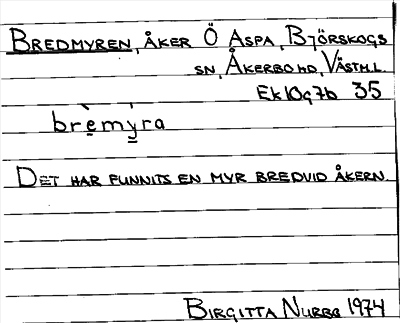 BREDMYREN, ÅKER Ö ASPA, BJÖRSKOGS
SN, ÅKERBO HD, VÄSTML.
Ek 10g7b 35
brèmýra
DET HAR FUNNITS EN MYR BREDVID ÅKERN.
BIRGITTA NURBG 1974